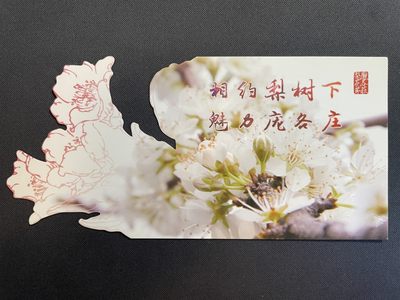 相约梨树下
魅力庞各庄